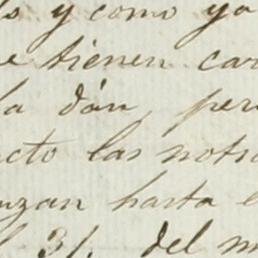 y como ya
tienen car
la dán, per
cto las noti
nzan hasta e
31. del m